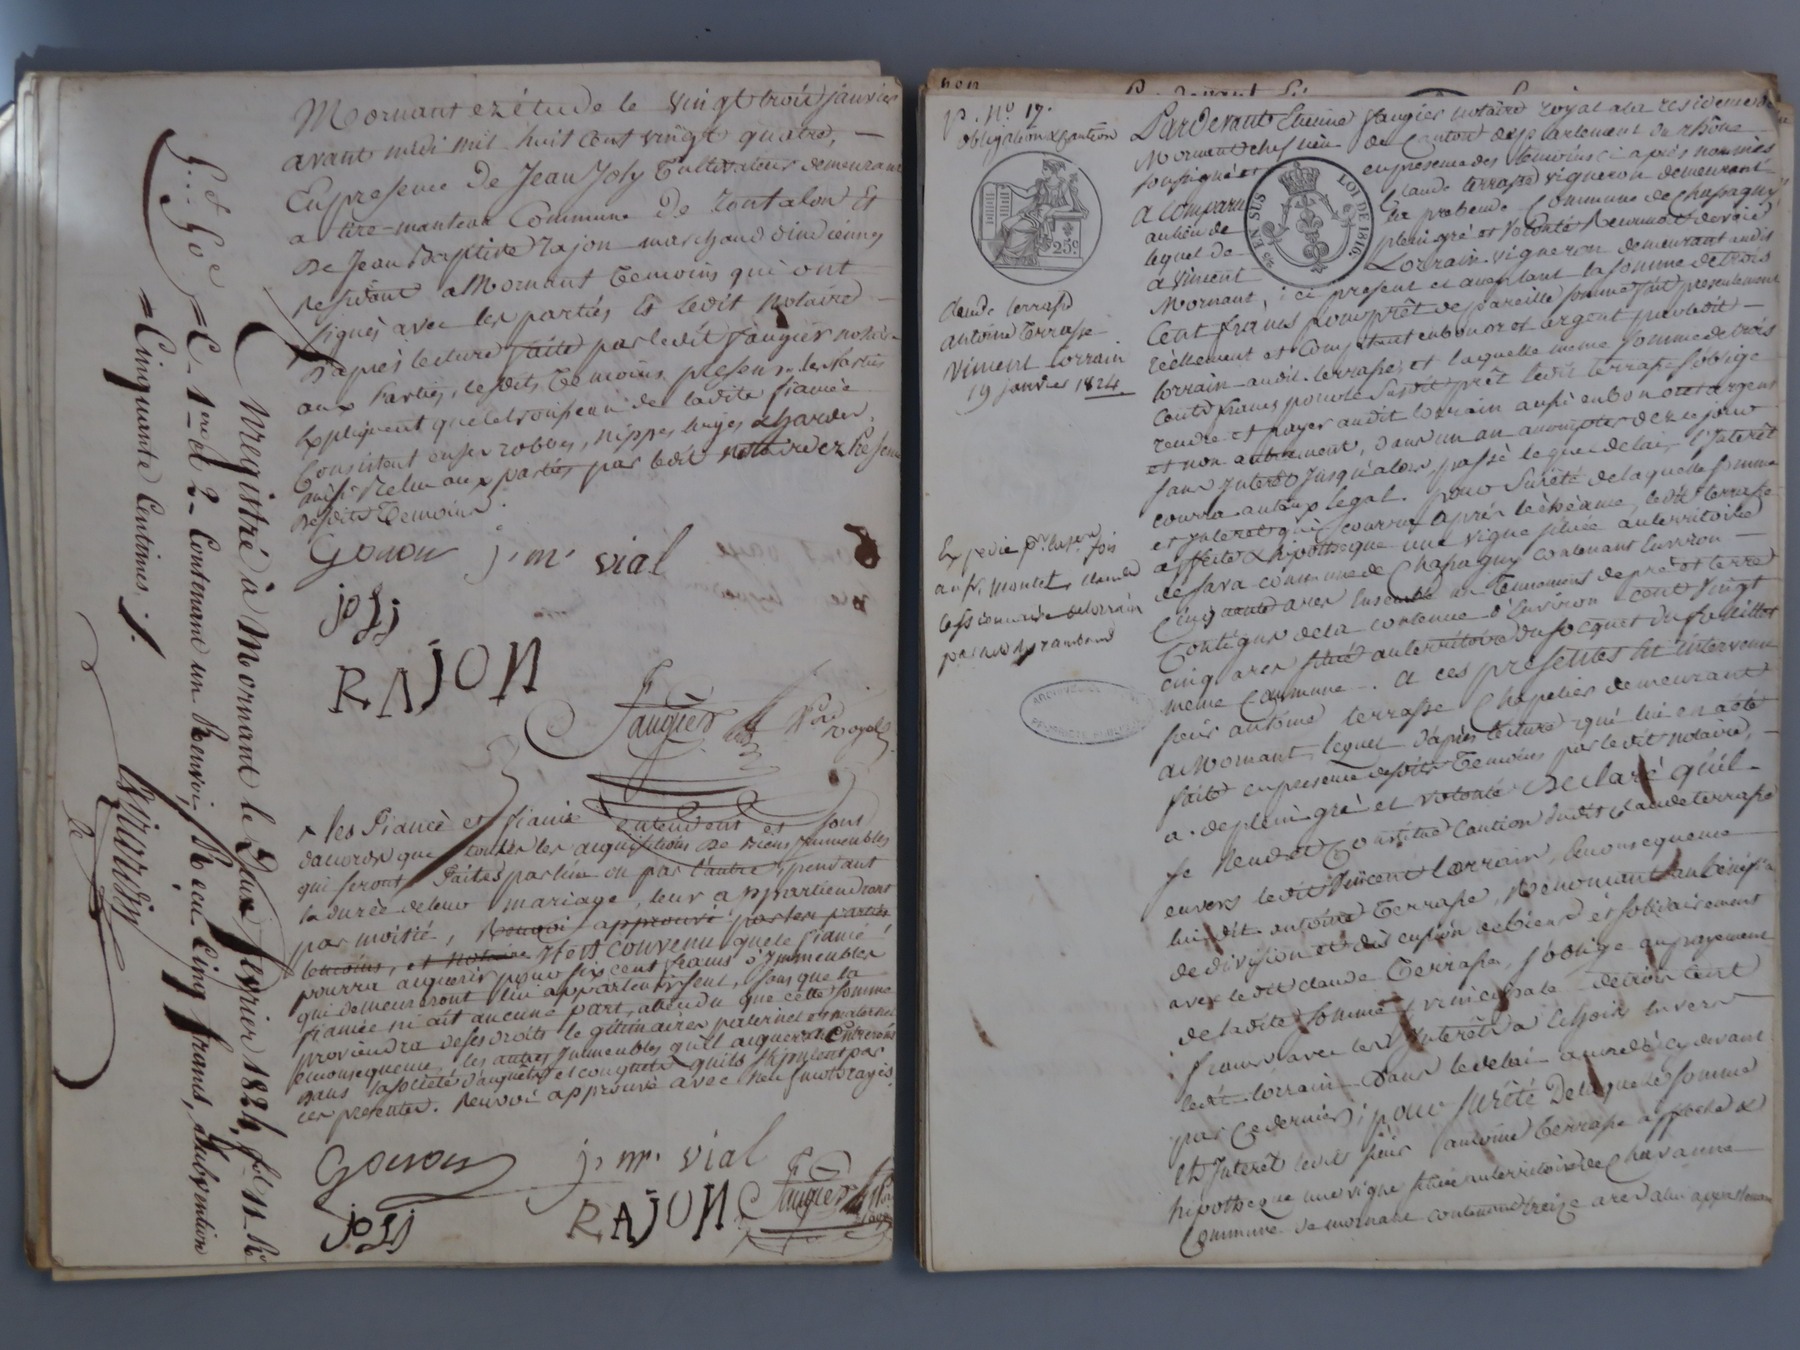 Mornant ez étude le vingt trois janvier
avant midi mil huit cent vingt quatre, —
En presence de Jean Joly Cultivateur demeurant
a tire-manteau Commune de rontalon Et
de Jean Baptiste rajon marchand d'indiennes
residant a Mornant temoins qui ont
signés avec les parties Et ledit notaire —
d'apres lecture faite par ledit faugier notaire
aux Parties, lesdits temoins presens. les Parties
Expliquent que le trousseau de ladite fiancée
Consistent en ses robbes, nippes linges & hardes.
aussi Relu aux parties par ledit notaire ez Presence
desdits temoins.
Gonon j. m. vial
joly
RAJON
Faugier Nre royal
les Fiancé et fiancée entendent et sont
d'accord que toutes les acquisitions de Biens Immeubles
qui seront faites par l'un ou par l'autre, pendant
la durée de leur mariage, leur appartiendront
par moitié, Renvoi approuvé par les parties
temoins, et notaire Il est convenu que le fiancé
pourra acquerir pour six cent francs d'Immeubles
qui demeureront lui appartenir seul, sans que la
fiancée ni ait aucune part, attendu que cette somme
proviendra de ses droits legitimaires paternel et maternel
en consequence, les autres Immeubles qu'il acquerra entreront
dans la société d'acquêts
ces presentes. Renvoi approuvé avec neuf mots rayés.
Gonon j. m. vial
joly RAJON Faugier Nre royal
Enregistré à Mornant le Deux fevrier 1824, fol 11 Ro
C. 1ere et 2. Contenant un Renvoi, Reçu Cinq francs, Subvention
Cinquante Centimes.
P. No. 17.
obligation & caution
25c.
25 EN SUS LOI DE 1816.
claude terrasse
antoine terrasse
Vincent lorrain
19 janvier 1824
Expedié pr. la pere fois
a sr. moulet, claude
cessionnaire de lorrain
ARCHIVES
Pardevant Etienne faugier notaire royal a la residence de
Mornant chef lieu de Canton departement du rhône
soussigné et en presence des temoins ci après nommés
a Comparu claude terrasse vigneron demeurant
au lieu de la probende Commune de chassagny
lequel de plein gré et volonté Reconnoit devoir
a vincent Lorrain vigneron demeurant audit
Mornant, ici present et acceptant la somme de trois
Cent francs pour prêt de pareille somme fait presentement
réellement et comptant en bon or et argent par ledit —
lorrain audit terrasse; et laquelle même somme de trois
cents francs pour le susdit prêt ledit terrasse s'oblige
rendre et payer audit lorrain aussi en bon or et argent
et non autrement, dans un an a compter de ce jour
sans Interêt Jusqu'alors, passé lequel delai, l'Interêt
courra au taux legal. pour sureté de laquelle somme
et Interet qui courra après l'échéance, ledit terrasse
affecte & hipotheque une vigne située au territoire
de sara commune de Chassagny contenant Environ —
Cinq ares Ensemble un tennement de pré et terre
Contigus de la contenue d'Environ cent vingt
cinq ares situé au territoire du socquet du
même Commune. A ces presentes Est intervenu
sieur antoine terrasse Chapelier demeurant
a Mornant, lequel d'après lecture qui lui en a été
faite en presence desdits temoins par ledit notaire, —
a de plein gré et volonté declaré qu'il
se Rend et Constitue Caution dudit claude terrasse
envers ledit Vincent lorrain, Enconsequence
luidit antoine terrasse, Renonçant au bénéfice
de division et discussion de biens et solidairement
avec ledit claude terrasse, s'oblige au payement
de ladite somme principale de trois cent
francs avec les Interêts a échoir Envers
ledit lorrain dans le delai accordé cy devant
par ce dernier; pour sureté de laquelle somme
Et Interet ledit sieur antoine terrasse affecte &
hipotheque une vigne située au territoire de chavanne
Commune de mornant contenant treize ares a lui appartenant